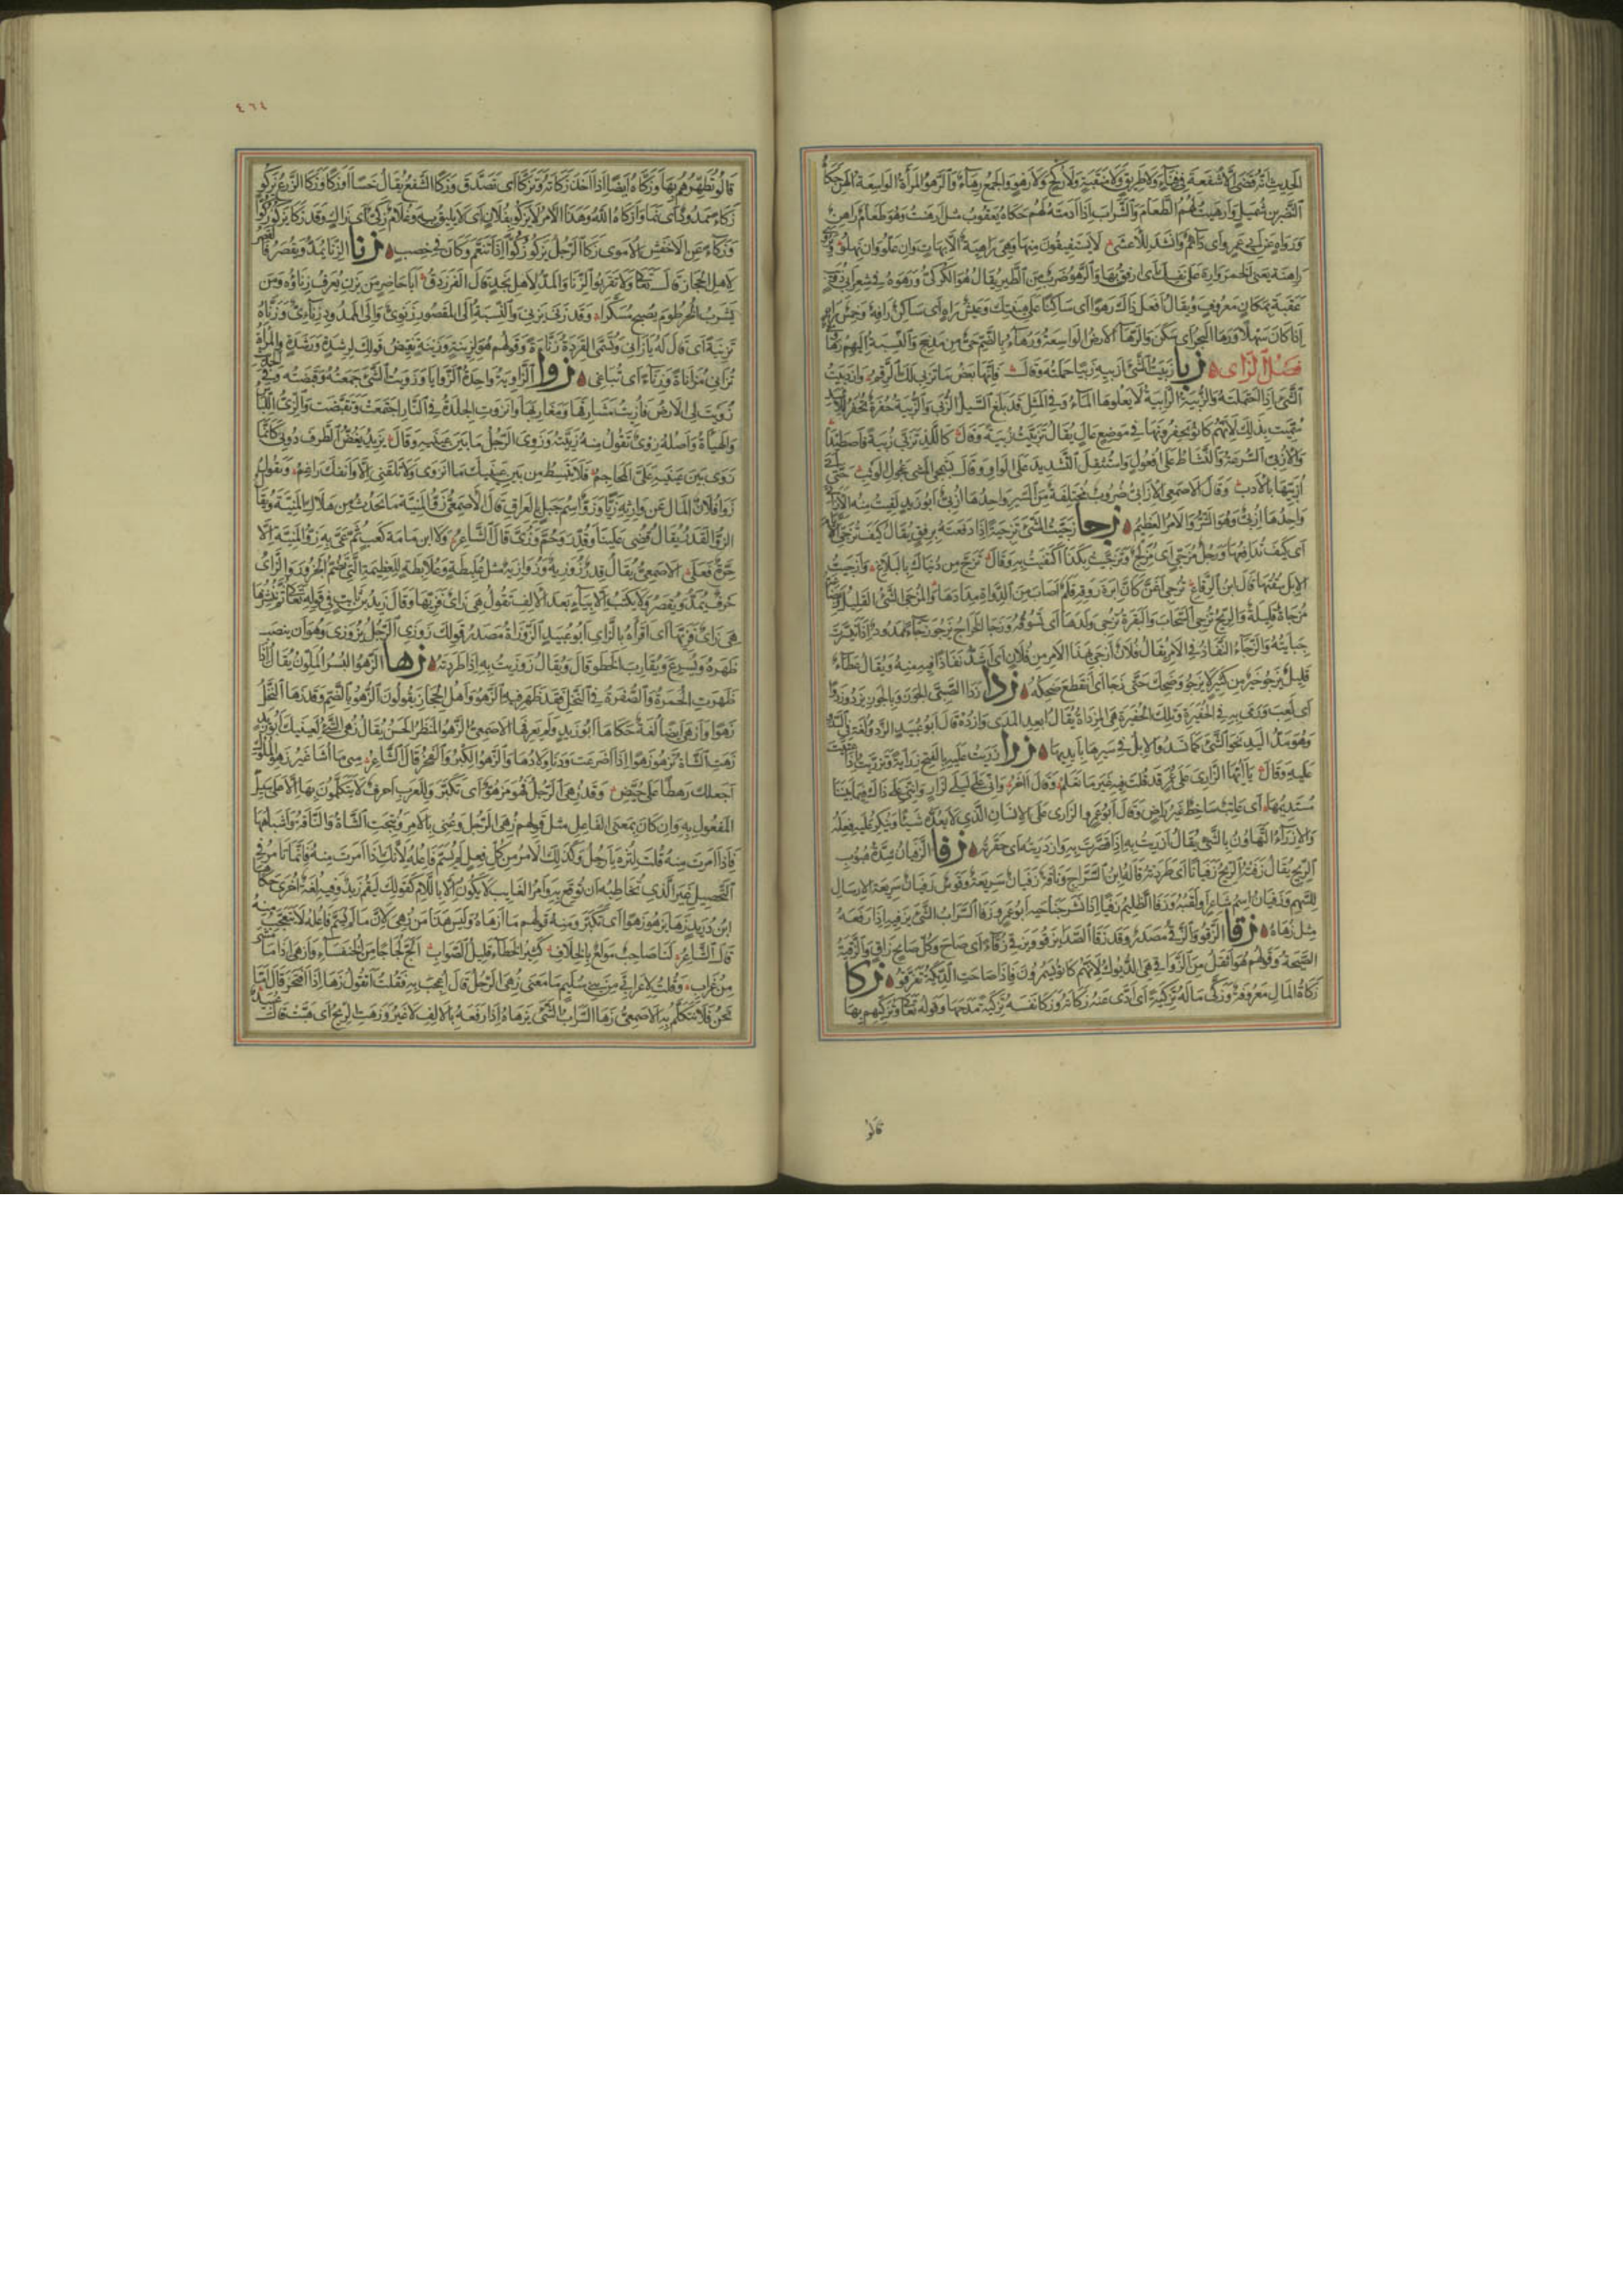 الحديث انه قضى ان لا شفعة في فناء ولا طريق ولا منقبة ولا ركح ولا رهو والجمع رهاء والرهو المرأة الواسعة الهن حكاه
النضر بن شميل وارهيت لهم الطعام والشراب اذا ادمته لهم حكاه يعقوب مثل ارهنت وهو طعام راهن
ورواه عن ابي عمرو اى دائم وانشد للاعشى لا يستفيقون منها وهى راهية الا بهات وان علوا وان نهلوا
عقبة بمكان معروف ويقال افعل ذلك رهوا اى ساكنا على هينتك وعيش راه اى ساكن رافه وخمس راه
اذا كان سهلا ورها البحر اى سكن والرهاء الارض الواسعة ورهاء بالضم حى من مذحج والنسبة اليهم رهاوى
فصل الزاى زبا زبيت الشئ ازبيه زبيا حملته وقال فانها بعض ما تزبى لك الرقم وازدبيت
الشئ اذا احتملته والزبية الرابية لا يعلوها الماء وفي المثل قد بلغ السيل الزبى والزبية حفرة تحفر للاسد
سميت بذلك لانهم كانوا يحفرونها في موضع عال يقال تزبيت زبية وقال كاللذ تزبى زبية فاصطيدا
والازبى السرعة والنشاط على افعول واستثقل التشديد على الواو وقال بشمجى المشى عجول الوثب حتى
ازبيها بالادب وقال الاصمعى الازابى ضروب مختلفة من السير واحدها ازبى ابو زيد لقيت منه الازابى
واحدها ازبى وهو الشر والامر العظيم زجا زجيت الشئ تزجية اذا دفعته برفق يقال كيف تزجى الايام
اى كيف تدافعها ورجل مزجى اى مزلج وتزجيت بكذا اكتفيت به وقال تزج من دنياك بالبلاغ وازجيت
الابل سقتها قال ابن الرقاع تزجى اغن كأن ابرة روقه قلم اصاب من الدواة مدادها والمزجى الشئ القليل وبضاعة
مزجاة قليلة والريح تزجى السحاب والبقرة تزجى ولدها اى تسوقه وزجا الخراج يزجو زجاء ممدود اذا تيسرت
جبايته والزجاء النفاذ في الامر يقال فلان ازجى بهذا الامر من فلان اى اشد نفاذا فيه منه ويقال عطاء
قليل يزجو خير من كثير لا يزجو وضحك حتى زجا اى انقطع ضحكه زدا زدا الصبى الجوز وبالجوز يزدو زدوا
اى لعب ورمى به في الحفيرة وتلك الحفيرة هى المزداة يقال ابعد المدى وازده قال ابو عبيد الزدو لغة في السدو
وهو مد اليد نحو الشئ كما تسدو الابل في سيرها بايديها زرا زريت عليه بالفتح زراية وتزريت اذا عتبت
عليه وقال يا ايها الزارى على عمر قد قلت فيه غير ما تعلم وقال آخر وانى على ليلى لزار واننى على ذاك فيما بيننا
مستديمها اى عاتب ساخط غير راض وقال ابو عمرو الزارى على الانسان الذى لا يعده شيئا وينكر عليه فعله
والازراء التهاون بالشئ يقال ازريت به اذا قصرت به وازدريته اى حقرته زفا الزفيان شدة هبوب
الريح يقال زفته الريح زفيانا اى طردته قاله ابن السراج وناقة زفيان سريعة وقوس زفيان سريعة الارسال
للسهم وزفيان اسم شاعر او لقبه وزفا الظليم زفيا اذا نشر جناحيه ابو عمرو زفا السراب الشئ يزفيه اذا رفعه
مثل زهاه زقا الزقو والزقى مصدر وقد زقا الصدا يزقو ويزقى زقاء اى صاح وكل صايح زاق والزقية
الصيحة وقولهم هو اثقل من الزواقى هى الديوك لانهم كانوا يسمرون فاذا صاحت الديكة تفرقوا زكا
زكاة المال معروفة وزكى ماله تزكية اى ادى عنه زكاته وزكا نفسه تزكية مدحها وقوله تعالى وتزكيهم بها
قالوا
٤٦٤
قالوا تطهرهم بها وزكاه ايضا اذا اخذ زكاته وتزكا اى تصدق وزكا الشفع يقال خسا او زكا وزكا الزرع يزكو
زكاء ممدود اى نما وازكاه الله وهذا الامر لا يزكو بفلان اى لا يليق به وغلام زكى اى زاك وقد زكا يزكو زكوا
وزكاء عن الاخفش الاموى زكا الرجل يزكو زكوا اذا تنعم وكان في خصب زنا الزنا يمد ويقصر فالقصر
لاهل الحجاز قال تعالى ولا تقربوا الزنا والمد لاهل نجد قال الفرزدق ابا حاضر من يزن يعرف زناؤه ومن
يشرب الخرطوم يصبح مسكرا وقد زنى يزنى والنسبة الى المقصور زنوى والى الممدود زناءى وزناه
تزنية اى قال له يا زانى وتسمى القردة زناءة وقولهم هو لزنية وزنية نقيض قولك لرشدة ورشدة والمرأة
تزانى مزاناة وزناء اى تباغى زوا الزاوية واحدة الزوايا وزويت الشئ جمعته وقبضته وفي الحديث
زويت لى الارض فاريت مشارقها ومغاربها وانزوت الجلدة في النار اجتمعت وتقبضت والزى اللباس
والهيأة واصله زوى تقول منه زييته وزوى الرجل ما بين عينيه وقال يزيد يغض الطرف دونى كانما
زوى بين عينيه على المحاجم فلا ينبسط من بين عينيك ما انزوى ولا تلقنى الا وانفك راغم وتقول
زوا فلان المال عن وارثه زيا وزو اسم جبل بالعراق قال الاصمعى زو المنية ما يحدث من هلاك المنية ويقال
الزو القدر يقال قضى علينا وقدر وحم وزى قال الشاعر ولا ابن مامة كعب ثم عى به زو المنية الا
حرة فعلى الاصمعى يقال قدر زوزية وزوازية مثل علبطة وعلابطة للعظيمة التى تضم الجزور والزاى
حرف يمد ويقصر ولا يكتب الا بياء بعد الالف تقول هى زاى فزيها وقال زيد بن ثابت في قوله تعالى ننشزها
هى زاى فزيها اى اقرأه بالزاى ابو عبيد الزوزاة مصدر قولك زوزى الرجل يزوزى وهو ان ينصب
ظهره ويسرع ويقارب الخطو قال ويقال زوزيت به اذا طردته زها الزهو البسر الملون يقال اذا
ظهرت الحمرة والصفرة في النخل فقد ظهر فيه الزهو واهل الحجاز يقولون الزهو بالضم وقد زها النخل
زهوا وازهى ايضا لغة حكاها ابو زيد ولم يعرفها الاصمعى والزهو المنظر الحسن يقال زهى الشئ لعينيك ابو زيد
زهت الشاة تزهو زهوا اذا اضرعت ودنا ولادها والزهو الكبر والفخر قال الشاعر متى ما اشأ غير زهو الملوك
اجعلك رهطا على حيض وقد زهى الرجل فهو مزهو اى تكبر وللعرب احرف لا يتكلمون بها الا على سبيل
المفعول به وان كان بمعنى الفاعل مثل قولهم زهى الرجل وعنى بالامر ونتجت الشاة والناقة واشباهها
فاذا امرت منه قلت لتزه يا رجل وكذلك الامر من كل فعل لم يسم فاعله لانك اذا امرت منه فانما تامر في
التحصيل غير الذى تخاطبه ان توقع به وامر الغايب لا يكون الا باللام كقولك ليقم زيد وفيه لغة اخرى حكاها
ابن دريد زها يزهو زهوا اى تكبر ومنه قولهم ما ازهاه وليس هذا من زهى لان ما لم يسم فاعله لا يتعجب منه
قال الشاعر لنا صاحب مولع بالخلاف كثير الخطاء قليل الصواب الج لجاجا من الخنفساء وازهى اذا ما مشى
من غراب وقلت لاعرابى من بنى سليم ما معنى زهى الرجل قال اعجب بنفسه فقلت اتقول زها اذا افتخر قال اما
نحن فلا نتكلم به الاصمعى زها السراب الشئ يزهاه اذا رفعه بالالف لا غير وزهت الريح اى هبت قال